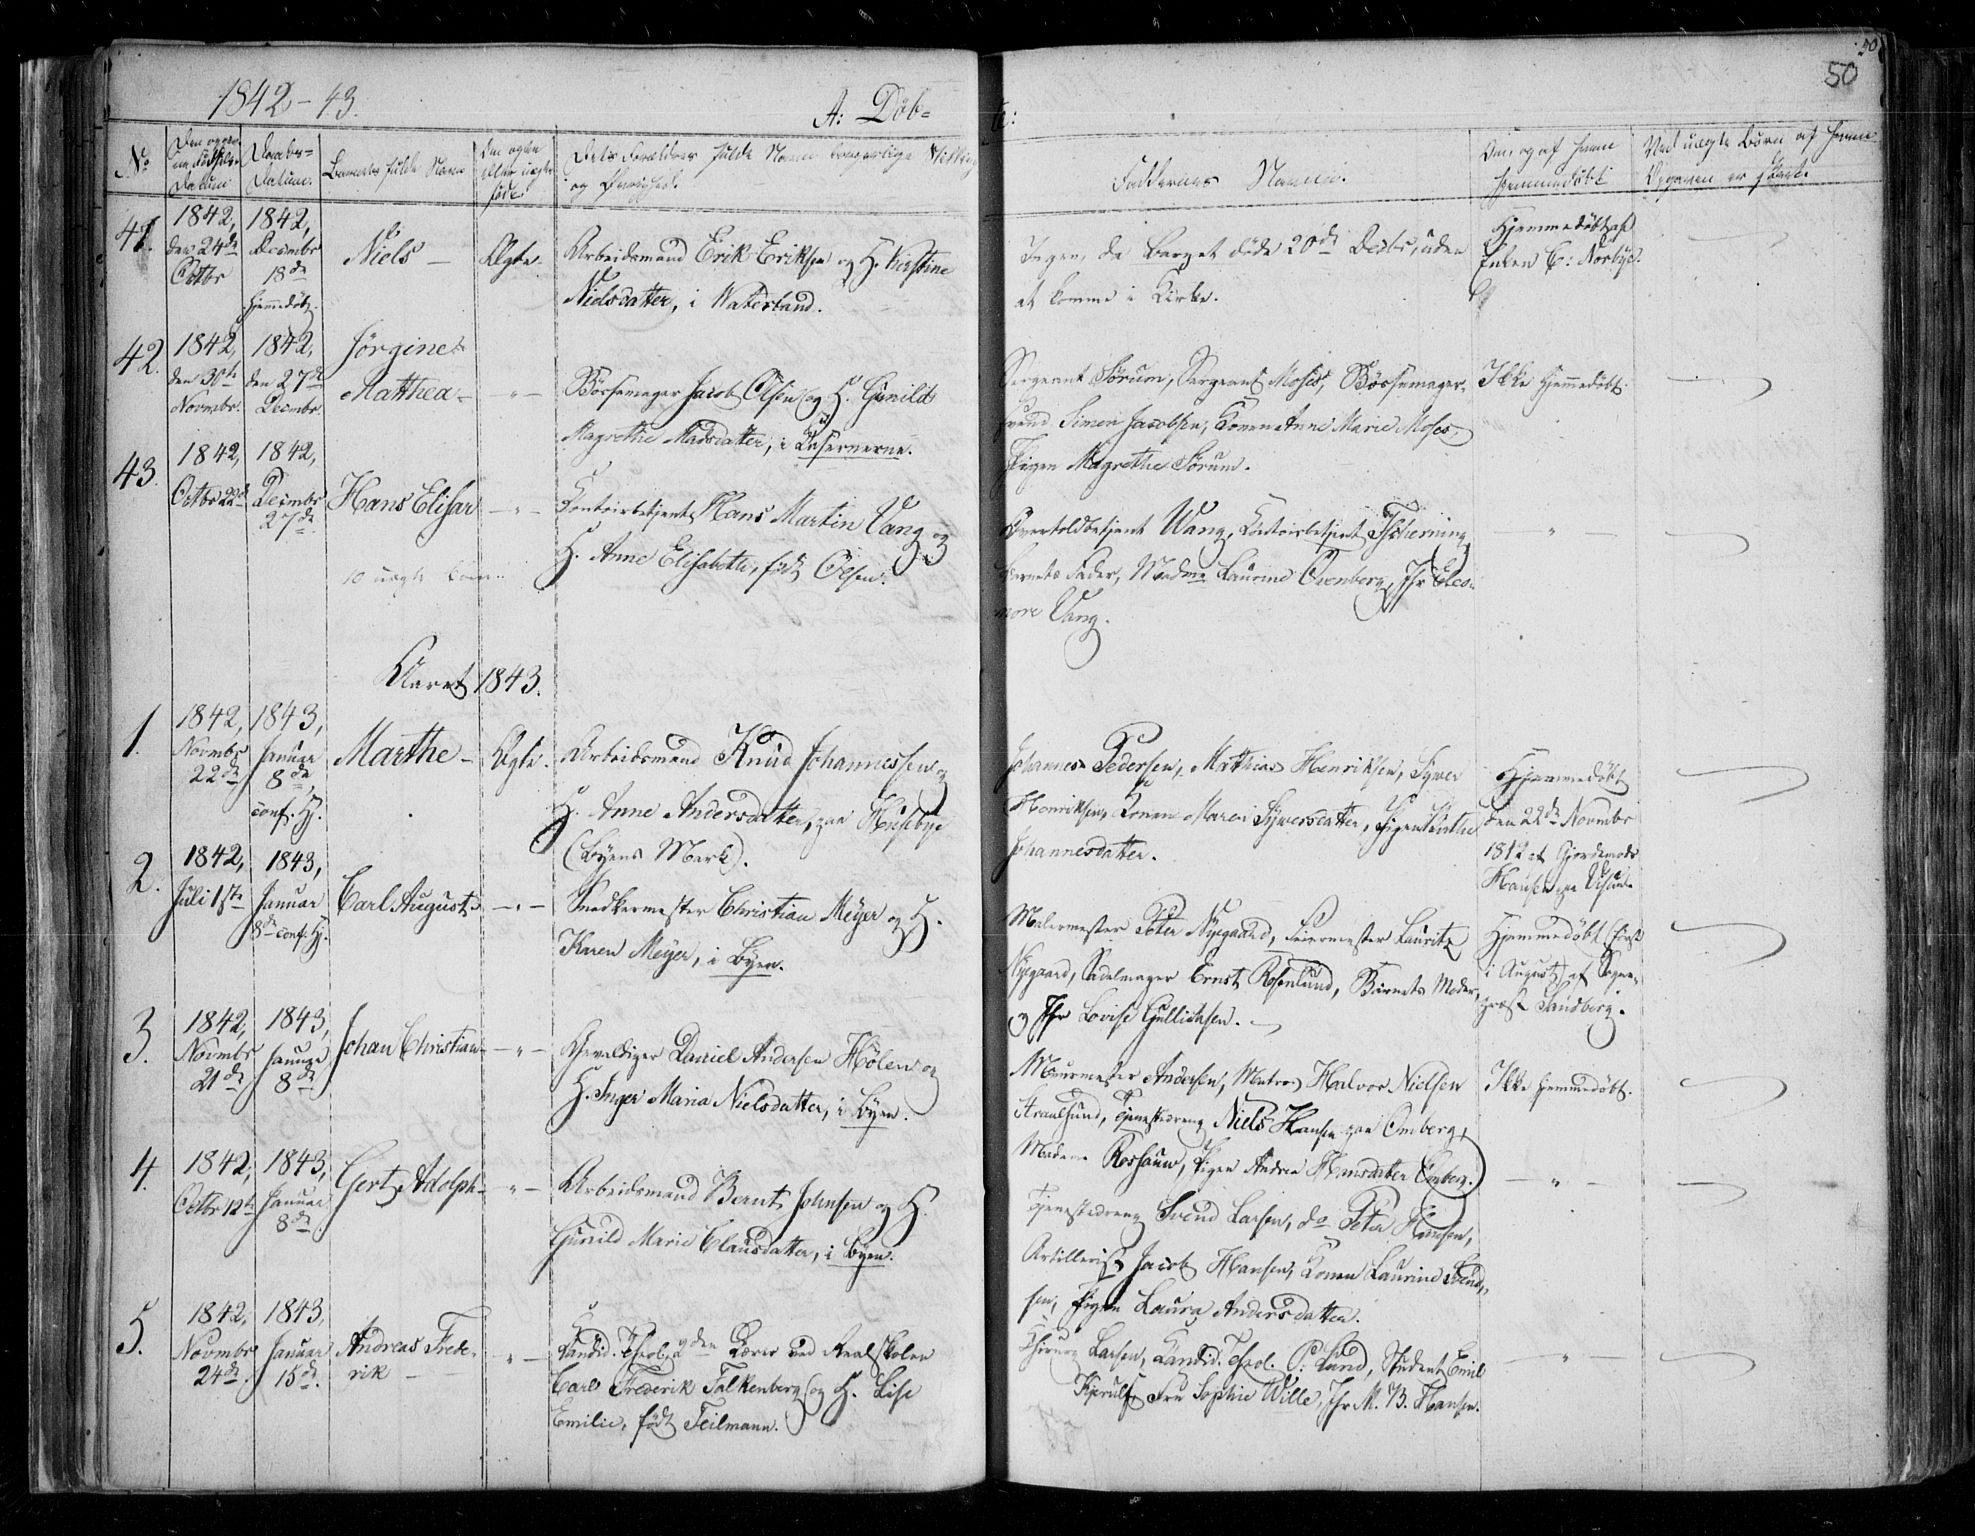 50
50
1842-43.
A: Döb-
te:
No
Den og
Datum
Daabs-
Datum.
Barnets fulde Navn
Om ægte
eller uægte
født.
Dets Forældres fulde Navne borgerlige Stilling
og
Faddernes Navne.
Om, og af hvem
Hjemmedöbt
Ved uægte Börn af hvem
Opgaven er skeet.
41.
1842,
den 24de
Octbr
1842,
Decembr
18de
Hjemmedöbt.
Niels -
Ægte.
Arbeidsmand Erik Eriksen og H. Kirstine
Nielsdatter, i Waterland.
Ingen, da Barnet döde 20de Decbr, uden
at komme i Kirke.
Hjemmedöbt af
Enken E: Norbye.
42.
1842,
den 30te
Novmbr.
1842,
den 27de
Decmbr.
Jørgine
Matthea -
- " -
Bössemager Jacob Olsen og H. Gunild
Magrethe Madsdatter, i Casernerne.
Sergeant Sörum, Sergeant Moses, Bössemager-
svend Simen Jacobsen, Konen Anne Marie Moses,
Pigen Magrethe Sörum.
Ikke hjemmedöbt.
43.
1842,
Octbr 22de
1842,
Decmbr
27de
Hans Elisar
- " -
Contoirbetjent Hans Martin Vang og
H. Anne Elisabeth, födt Olsen.
Overtoldbetjent Vang, Contoirbetjent Tscherning,
Barnets Fader, Madme Laurine Ovenberg, Jfr Eleo-
nore Vang.
- " -
10 uægte Börn.
Aaret 1843.
1.
1842,
Novmbr
22de
1843,
Januar
8de
conf. Hj.
Marthe -
Ægte.
Arbeidsmand Knud Johannessen og
H. Anne Andersdatter, paa Huseby
(Byens Mark).
Johannes Pedersen, Mathias Henriksen, Syver
Henriksen, Konen Maren Syversdatter, Pigen
Johannesdatter.
Hjemmedöbt
den 22de Novmbr
1842 af Gjordemoder
Hansen paa
2.
1842,
Juli 1ste
1843,
Januar
8de conf. Hj.
Carl August
- " -
Snedkermester Christian Meyer og H.
Karen Meyer, i Byen.
Malermester Peter Nyegaard, Feiermester Lauritz
Nyegaard, Sadelmager Ernst Rosenlund, Barnets Moder,
og Jfr Lovise Gullichsen.
Hjemmedöbt (först
i August) af Sogne-
præst Sandberg.
3.
1842,
Novmbr
21de
1843,
Januar
8de
Johan Christian
- " -
Gevaldiger Daniel Andersen Hölen og
H. Inger Maria Nielsdatter, i Byen.
Muurmester Andersen, Matros Halvor Nielsen
Straalsund, Tjenestedreng Niels Hansen paa Omberg,
Madame Rossauw, Pigen Andrea Hansdatter Omberg.
Ikke hjemmedöbt.
4.
1842,
Octbr 12te
1843,
Januar
8de
Gert Adolph
- " -
Arbeidsmand Bernt Johnsen og H.
Gunild Marie Clausdatter, i Byen.
Tjenestedreng Svend Larsen, do Peter Hansen,
Artillerist Jacob Hansen, Konen Laurine Svend-
sen, Pigen Laura Andersdatter.
- " -
5.
1842,
Novmbr
24de
1843,
Januar
15de
Andreas Frede-
rik -
" -
Candid. Theol, 2den Lærer ved Realskolen
Carl Frederik Falkenberg og H. Lise
Emilie, födt Teilmann.
Chirurg Larsen, Candid. Theol. P. Lund, Student Emil
Kjerulf, Fru Sophie Wille, Jfr M. B. Hansen.
- " -